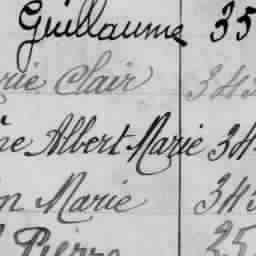 Guillaume 35
rie Clair 343
ne Albert Marie 34
in Marie 343
Pierre 25